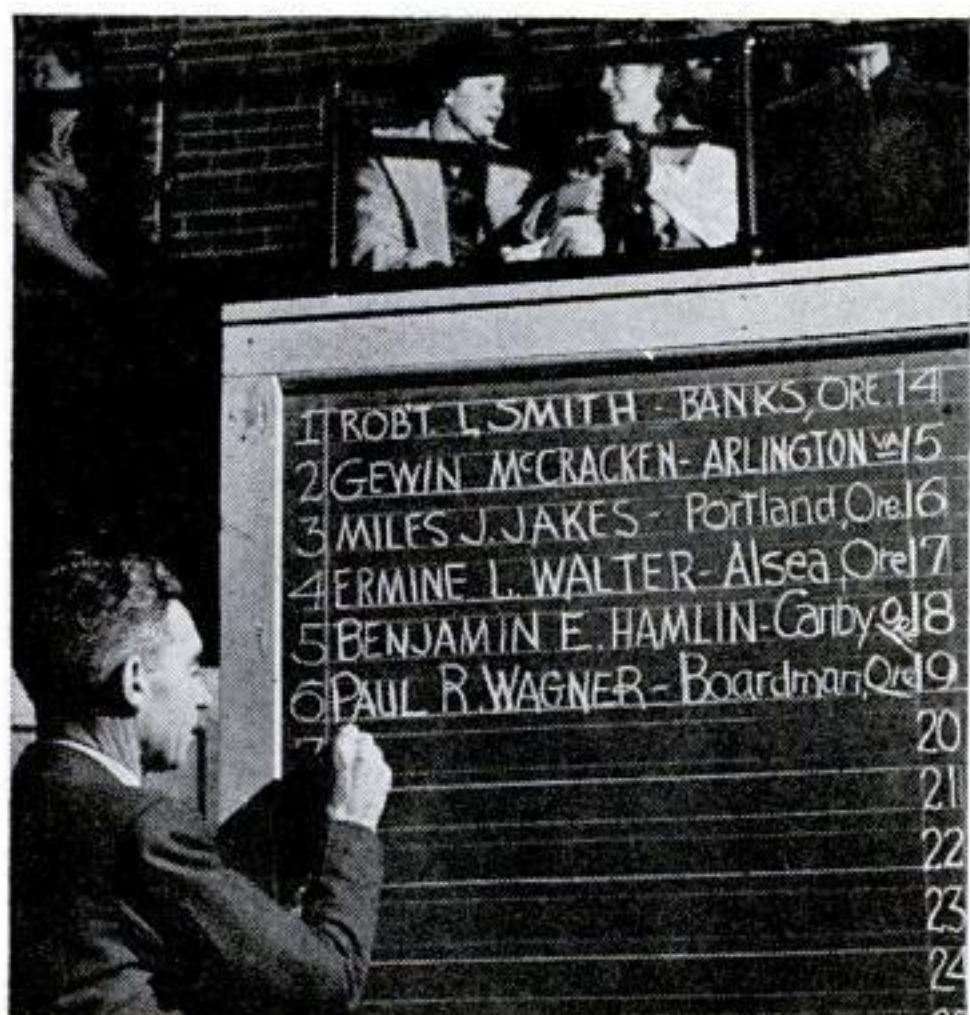 1 ROB'T. L. SMITH - BANKS, ORE. 14
2 GEWIN McCRACKEN - ARLINGTON VA 15
3 MILES J. JAKES - Portland, Ore. 16
4 ERMINE L. WALTER - Alsea, Ore 17
5 BENJAMIN E. HAMLIN - Canby, Ore 18
6 PAUL R. WAGNER - Boardman, Ore 19
20
21
22
23
24